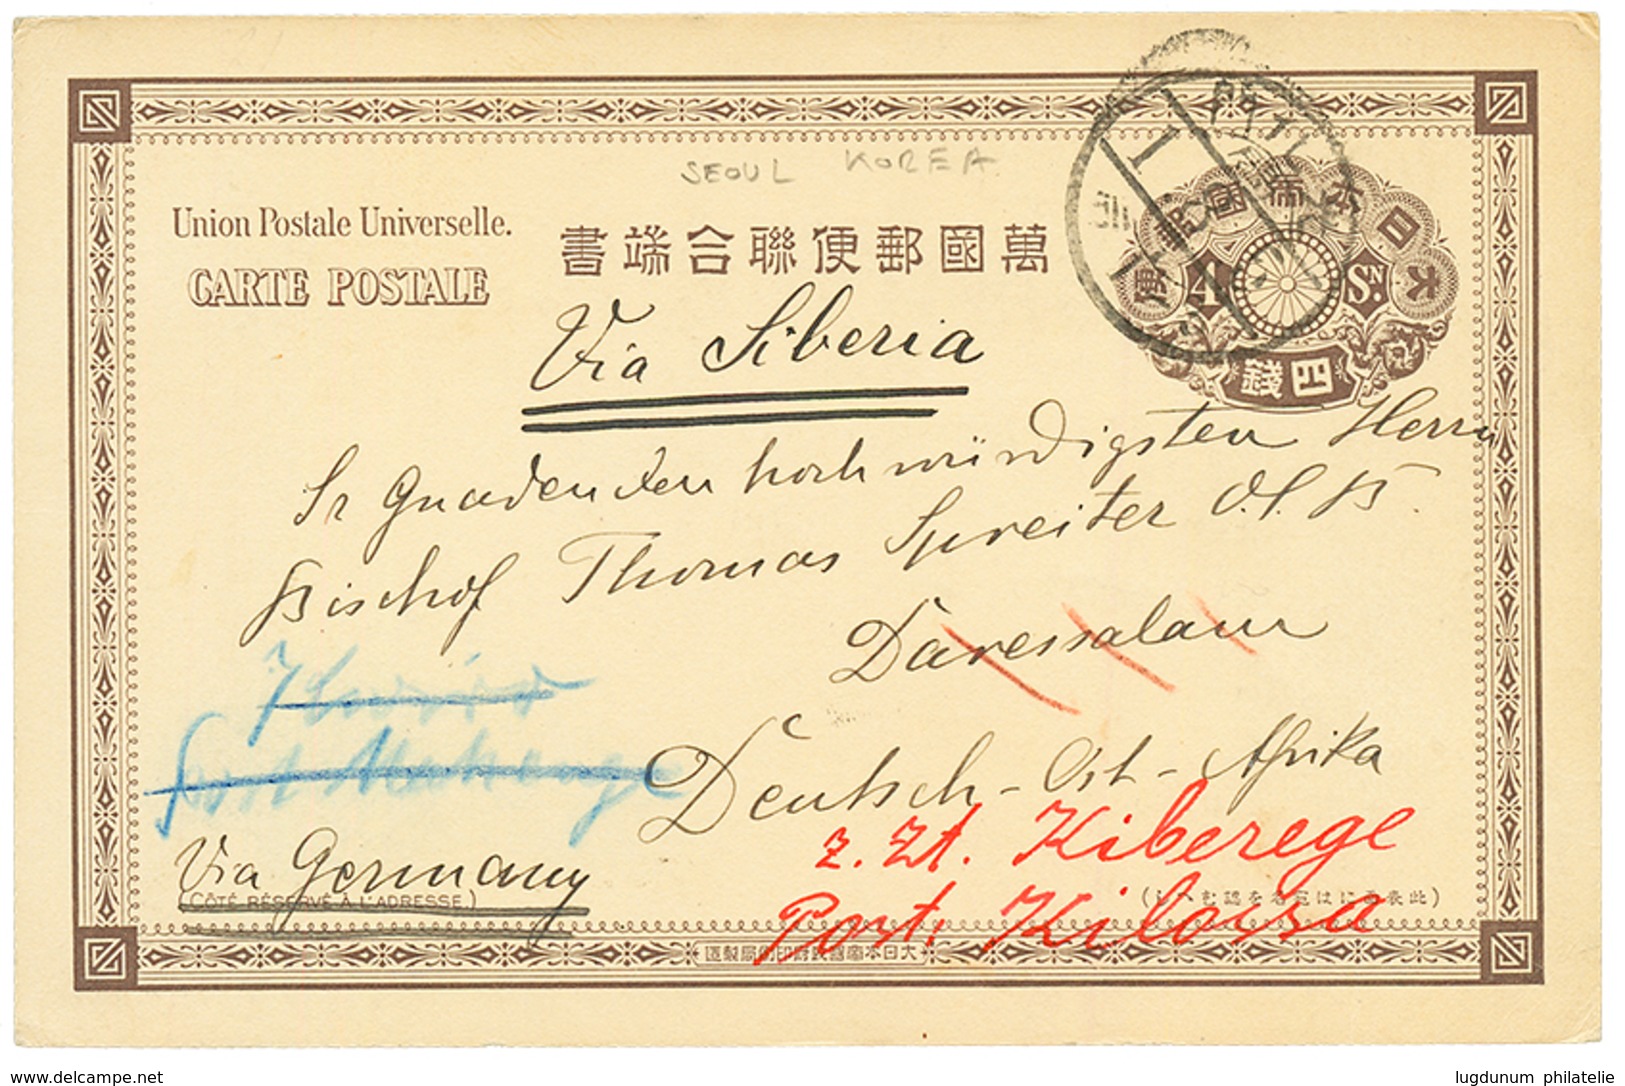 SEOUL KOREA
Union Postale Universelle.
CARTE POSTALE
書端合聯便郵國萬
大日本帝國郵便
4 SN.
錢四
Via Siberia
Sr Gnaden den hochwürdigsten Herrn
Bischof Thomas Spreiter O.S.B.
Daressalam
Deutsch-Ost-Afrika
Post Mahenge
z. Zt. Kiberege
Post. Kilossa
Via Germany
(CÔTÉ RÉSERVÉ À L'ADRESSE.)
delcampe.net
lugdunum philatelie